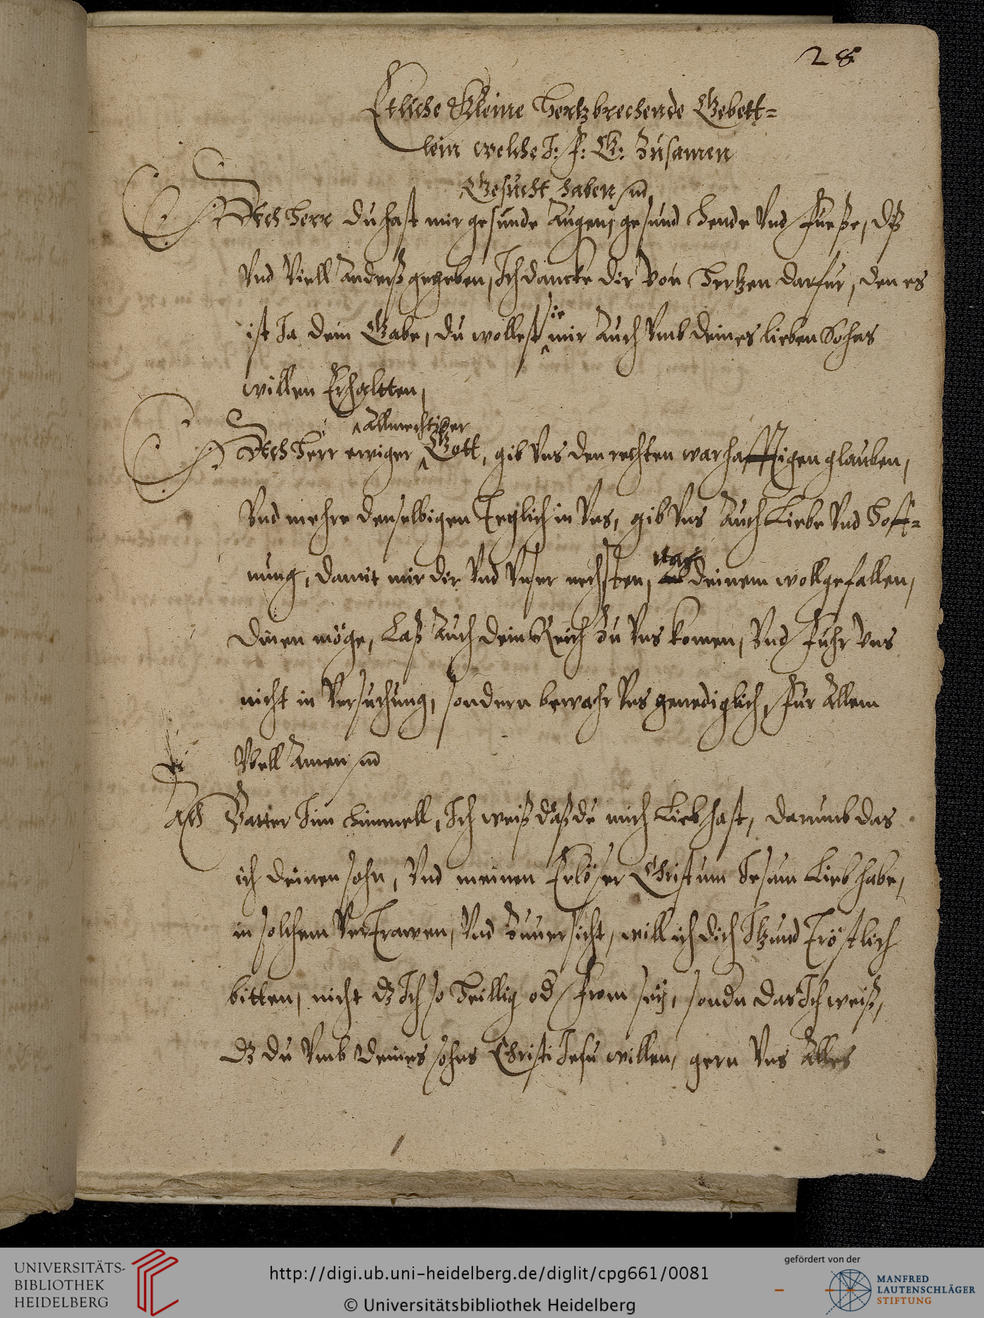 28
Etliche Kleine Hertzbrechende Gebett=
lein welche J: F: G: Zusamen
Gesucht haben
Ach Herr du hast mir gesunde Augen, gesund Hende Vnd Fueße, dß
Vnd Viell Anderß gegeben, Ich dancke dir von Hertzen darfür, den es
ist Ja dein Gabe, du wollest sie mir Auch vmb deines lieben Sohns
willen Erhaltten,
Ach Herr ewiger Allmechtiger Gott, gib Vns den rechten warhafftigen glauben,
Vnd mehre denselbigen Teglich in Vns, gib Vns Auch Liebe Vnd Hoff=
nung, damit mir dir Vnd Vnser nechsten, nach deinem wollgefallen,
dinen möge, Laß Auch dein Reich Zu Vns komen, Vnd Fuhr Vns
nicht in Versuchung, sondern bewahr Vns genediglich, Für Allem
Vbell Amen
Ach Vatter Jm Himmell, Ich weiß daß du mich Lieb hast, darumb das
ich deinen sohn, Vnd meinen Erlößer Christum Jesum Lieb habe,
in solchem VerTrawen, Vnd Zuuersicht, will ich dich Jtzund Tröstlich
bitten, nicht dz Ich so Heillig od From sey, sondn das Ich weiß,
dz du Vmb deines sohns Christi Jesu willen, gern Vns Alles
UNIVERSITÄTS-
BIBLIOTHEK
HEIDELBERG
http://digi.ub.uni-heidelberg.de/diglit/cpg661/0081
© Universitätsbibliothek Heidelberg
gefördert von der
MANFRED
LAUTENSCHLÄGER
STIFTUNG